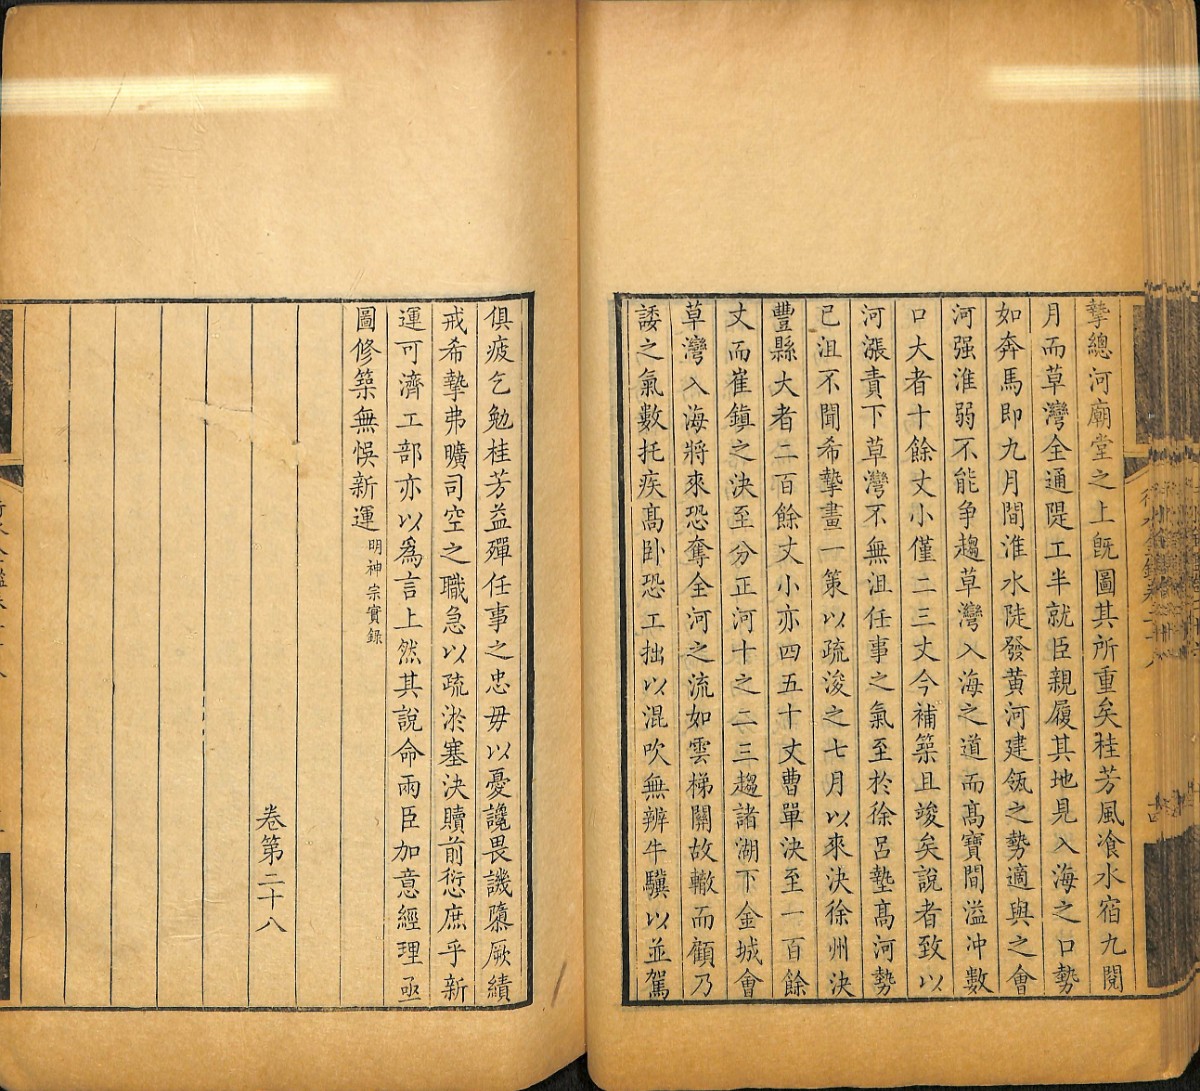 摯總河廟堂之上旣圖其所重矣桂芳風飡水宿九閱
月而草灣全通隄工半就臣親履其地見入海之口勢
如奔馬即九月間淮水陡發黄河建瓴之勢適與之會
河强淮弱不能争趨草灣入海之道而髙寶間溢冲數
口大者十餘丈小僅二三丈今補築且竣矣說者致以
河漲責下草灣不無沮任事之氣至於徐吕墊髙河勢
已沮不聞希摯畫一策以疏浚之七月以來決徐州決
豐縣大者二百餘丈小亦四五十丈曹單決至一百餘
丈而崔鎮之決至分正河十之二三趨諸湖下金城會
草灣入海將來恐奪全河之流如雲梯關故轍而顧乃
諉之氣數托疾髙卧恐工拙以混吹無辨牛驥以並駕
俱疲乞勉桂芳益殫任事之忠毋以憂讒畏譏隳厥績
戒希摯弗曠司空之職急以疏淤塞決贖前愆庶乎新
運可濟工部亦以爲言上然其說命兩臣加意經理亟
圖修築無悞新運明神宗實録
卷第二十八